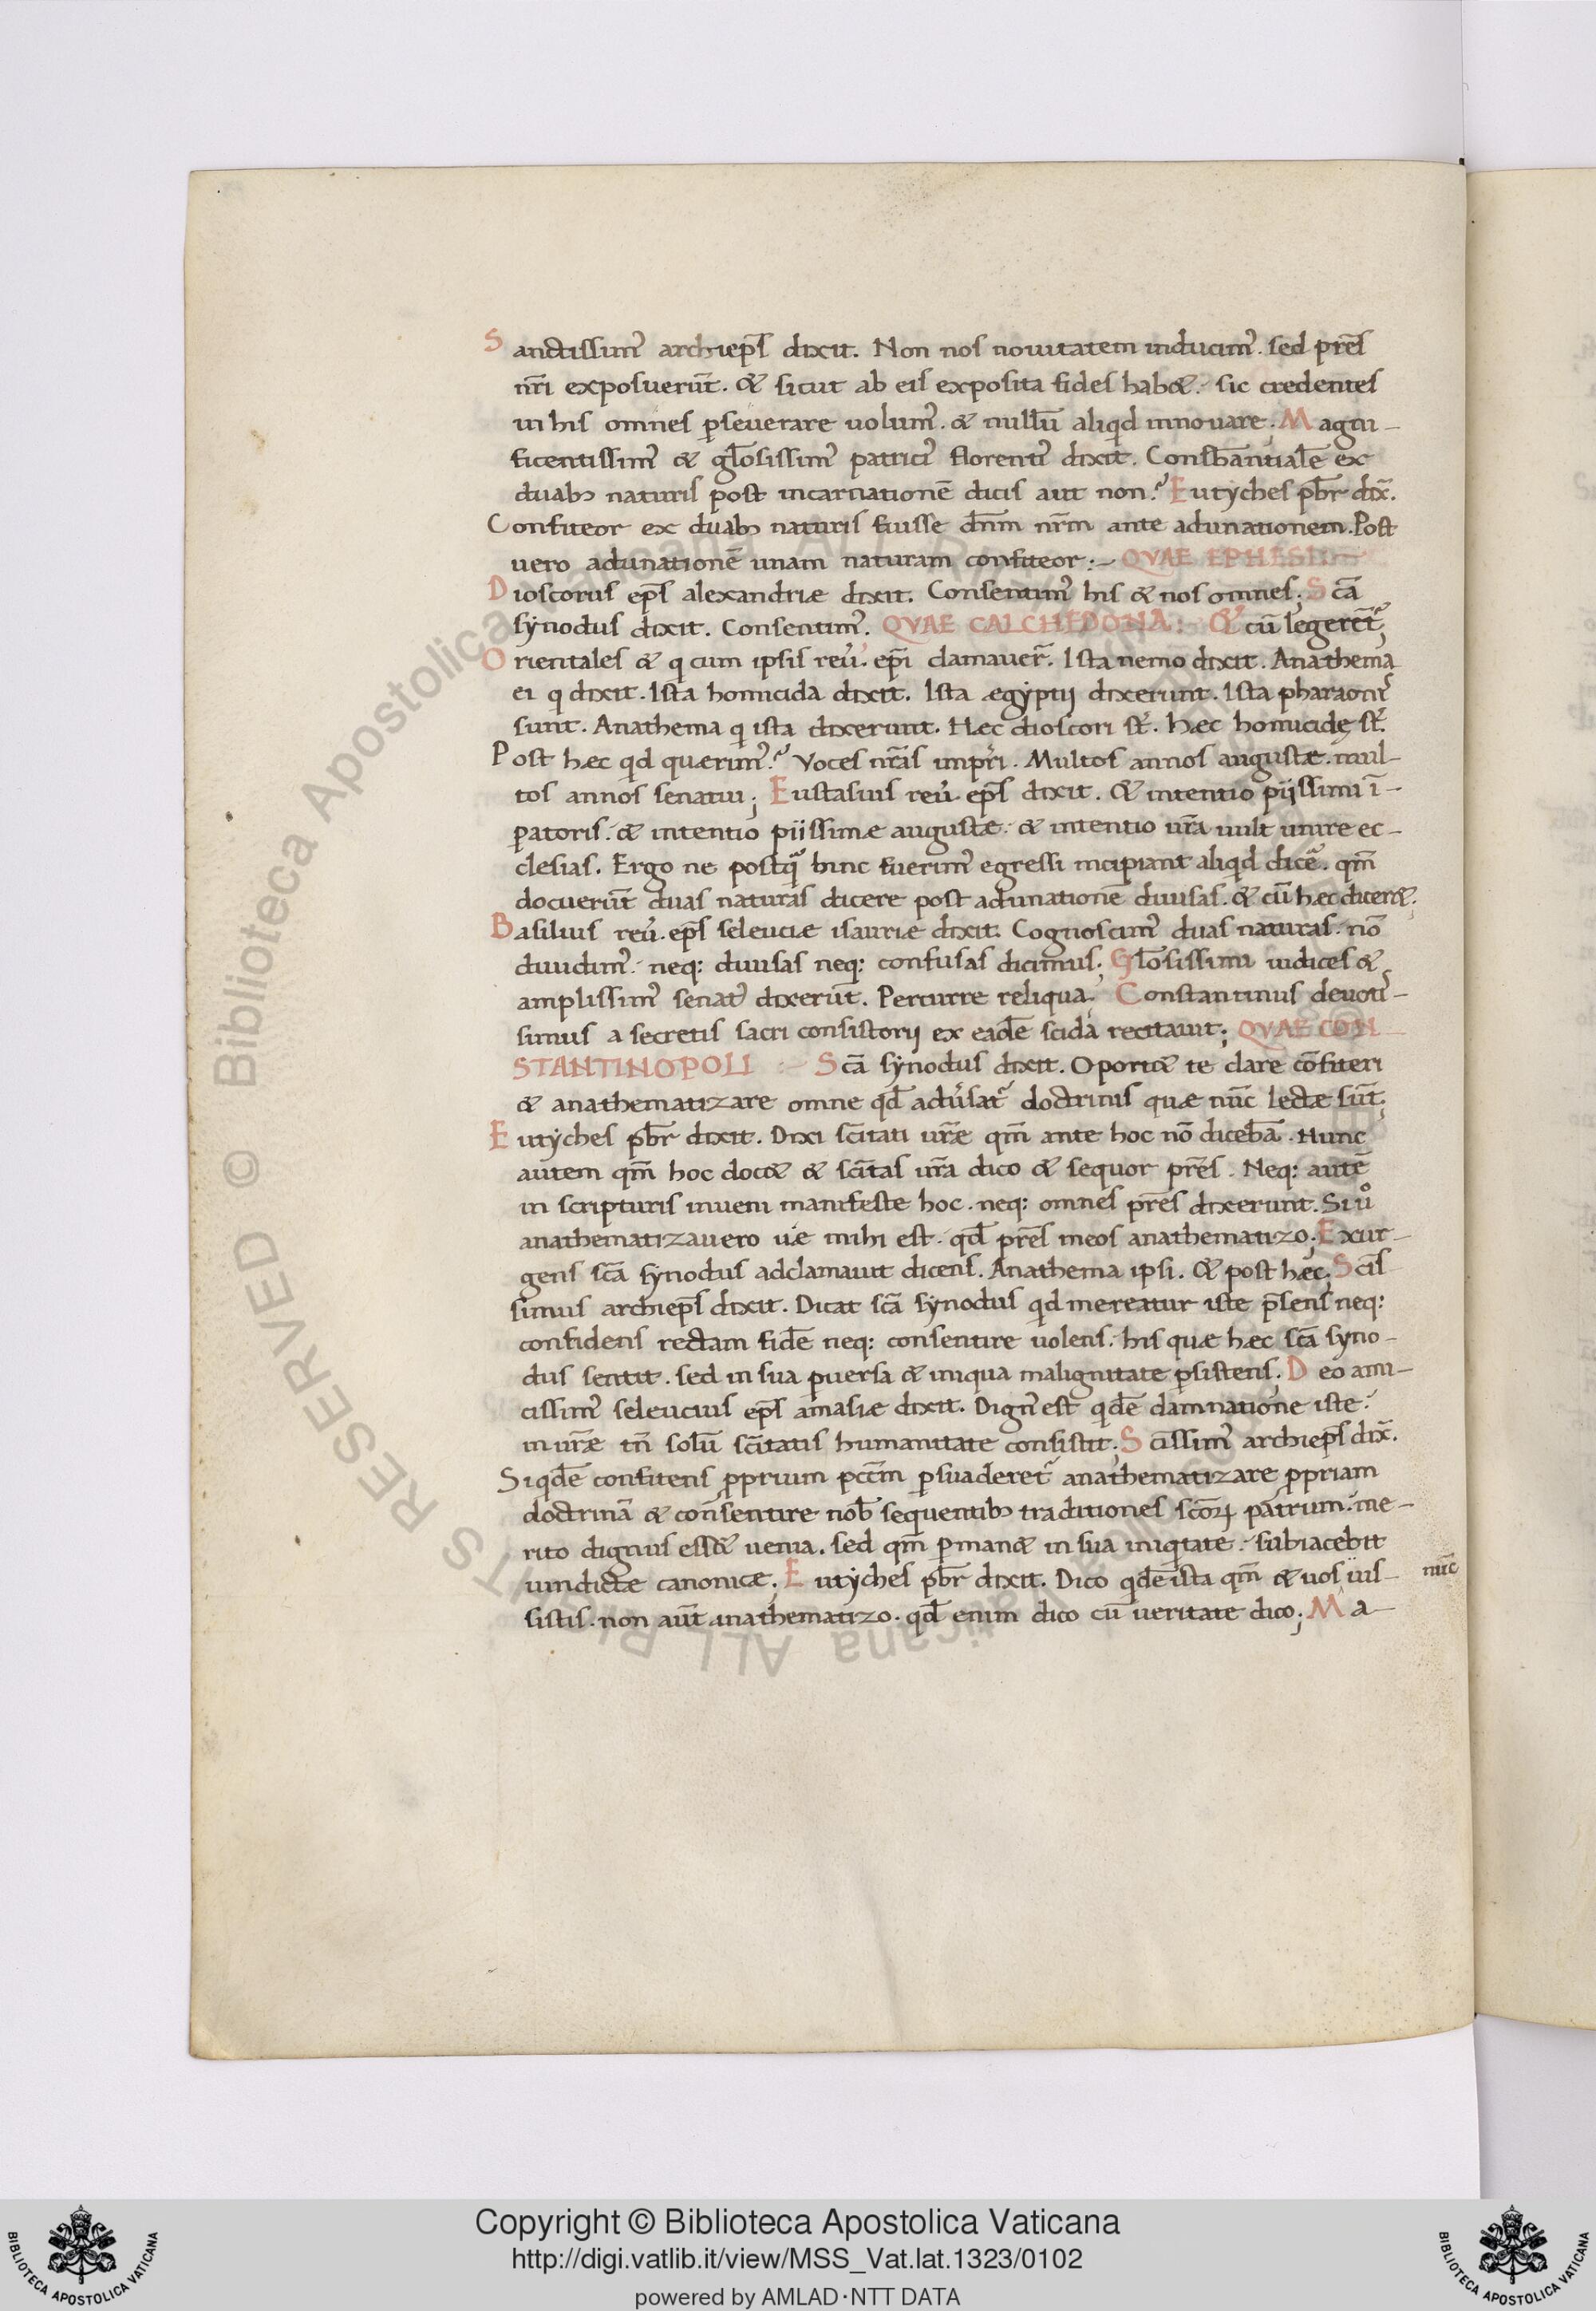 Sanctissim᾽ archiep̅s dixit. Non nos nouitatem inducim᾽. sed pr̅es
nr̅i exposuer̅t. & sicut ab eis exposita fides hab&. sic credentes
in his omnes p̱seuerare uolum᾽. & null̅u aliqd innouare. Magni-
ficentissim᾽ & gl̅osissim᾽ patrici᾽ florenti᾽ dixit. Consb̅antial̅e ex
duab; naturis post incarnation̅e dicis aut non? Eutyches pb̅r dix̅.
Confiteor ex duab; naturis fuisse dn̅m nr̅m ante adunationem. Post
uero adunation̅e unam naturam confiteor:- QVAE EPHESI:-
Dioscorus ep̅s alexandriæ dixit. Consentim᾽ his & nos omnes; Sc̅a
synodus dixit. Consentim᾽. QVAE CALCHEDONA: & cu̅ legeret᾽;
Orientales & q cum ipsis reu᾽. ep̅i clamauer̅. Ista nemo dixit. Anathema
ei q dixit. Ista homicida dixit. Ista ægyptij dixerunt. Ista pharaonis
sunt. Anathema q ista dixerunt. Hæc dioscori st̅. hæc homicidę st̅.
Post hæc qd quærim᾽? Voces nr̅as impr̅i. Multos annos augustæ. mul-
tos annos senatui; Eustasius reu᾽. ep̅s dixit. & intentio pijssimi i̅-
p̱atoris. & intentio piissimæ augustæ. & intentio ur̅a uult unire ec-
clesias. Ergo ne postq̅ hinc fuerim᾽ egressi incipiant aliqd dice᾽. qm̅
docuer̅t duas naturas dicere post adunation̅e diuisas. & cu̅ hæc dicer&;
Basilius reu᾽. ep̅s seleuciæ isauriæ dixit. Cognoscim᾽ duas naturas. no̅
diuidim᾽. neq: diuisas neq: confusas dicimus; Gl̅osissimi iudices &
amplissim᾽ senat᾽ dixer̅t. Percurre reliqua; Constantinus deuotis-
simus a secretis sacri consistorij ex ead̅e scida recitauit; QVAE CON
STANTINOPOLI :- Sc̅a synodus dixit. Oport& te clare co̅fiteri
& anathematizare omne qd̅ adu᾽sat᾽ doctrinis quæ nu̅c lectæ su̅t;
Eutyches pb̅r dixit. Dixi sc̅itati ur̅æ qm̅ ante hoc no̅ diceba̅. Nunc
autem qm̅ hoc doc& & sc̅itas ur̅a dico & sequor pr̅es. Neq: aute̅
in scripturis inueni manifeste hoc. neq: omnes pr̅es dixerunt. Si uº
anathematizauero uæ mihi est. qd̅ pr̅es meos anathematizo; Exur-
gens sc̅a synodus adclamauit dicens. Anathema ipsi. & post hæc; Sc̅is
simus archiep̅s dixit. Dicat sc̅a synodus qd mereatur iste p̅sens neq:
confidens rectam fid̅e neq: consentire uolens. his quæ hæc sc̅a syno-
dus sentit. sed in sua p̱uersa & iniqua malignitate p̱sistens. Deo ami-
cissim᾽ seleucius ep̅s amasiæ dixit. Dign᾽ est qd̅e damnatione iste.
in ur̅æ tn̅ solu̅ sc̅itatis humanitate consistit; Sc̅issim᾽ archiep̅s dix̅.
Si qd̅e confitens p̱prium pcc̅m p̱suaderet᾽ anathematizare p̱priam
doctrina̅ & consentire nob̅ sequentib; traditiones sc̅oꝝ patrum. me-
rito dignus ess& uenia. sed qm̅ p̱man& in sua iniqitate. subiacebit
uindictæ canonicæ. Eutyches pb̅r dixit. Dico qd̅e ista qm̅ & uos ius- nu̅c
sistis. non aut̅ anathematizo. qd̅ enim dico cu̅ ueritate dico; Ma-
Copyright © Biblioteca Apostolica Vaticana
http://digi.vatlib.it/view/MSS_Vat.lat.1323/0102
powered by AMLAD·NTT DATA